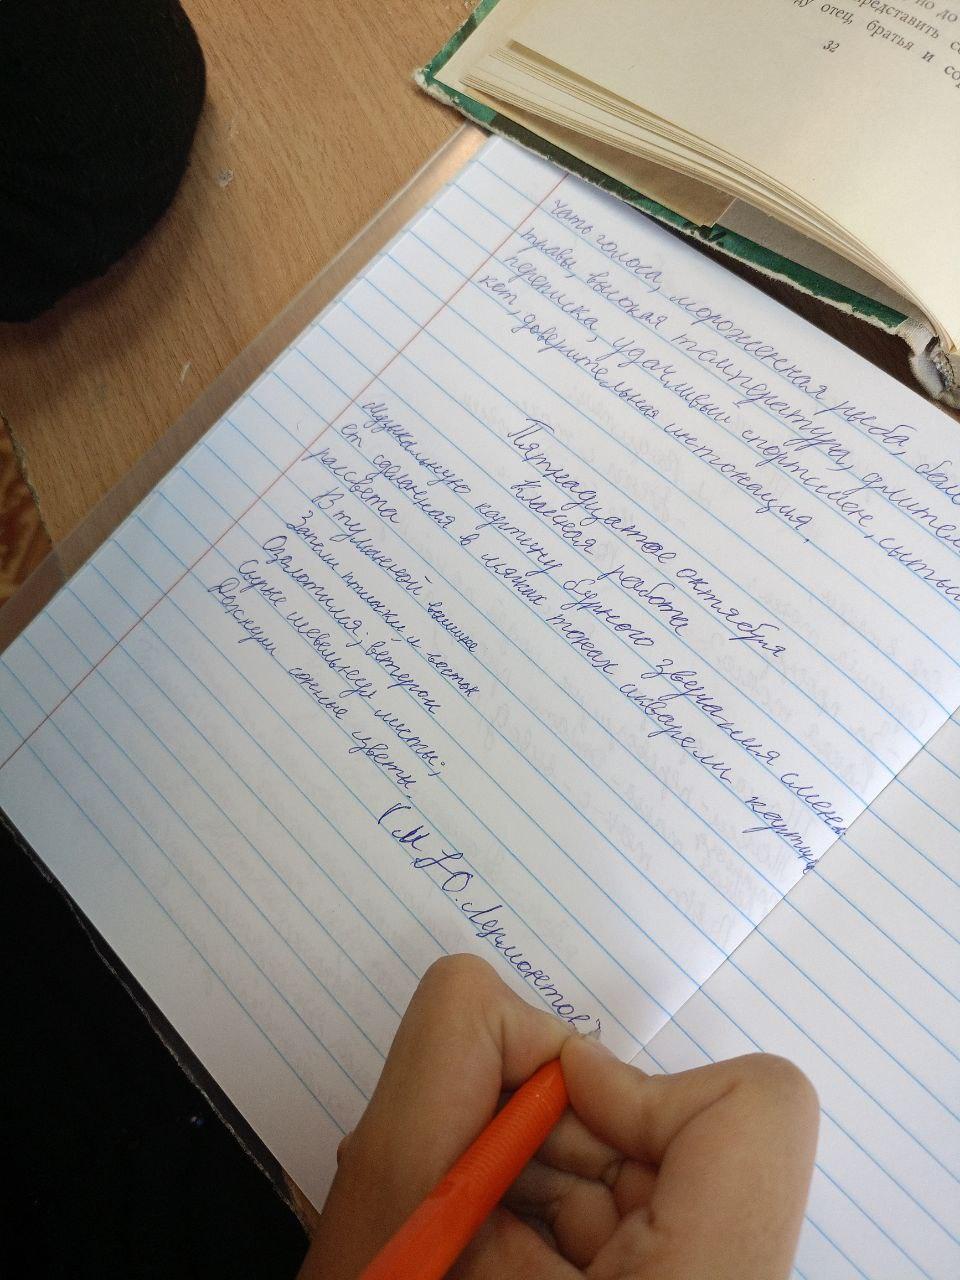 но до
представить се
ду отец, братья и сор
32
чать голоса, мороженная рыба, бал
травы, высокая температура, длител
переписка, удачливый спортсмен, сытый
кет, доверительная интонация.
Пятнадцатое октября
Класная работа
Музыкальную картину бурного звучания сменя
ет сделанная в мягких тонах акварели картина
рассвета
В туманной вышине
Запели птички и восток
Озолотился; ветерок
Сырые шевельнул листы;
Дохнули сонные цветы.
(М.Ю. Лермонтов)